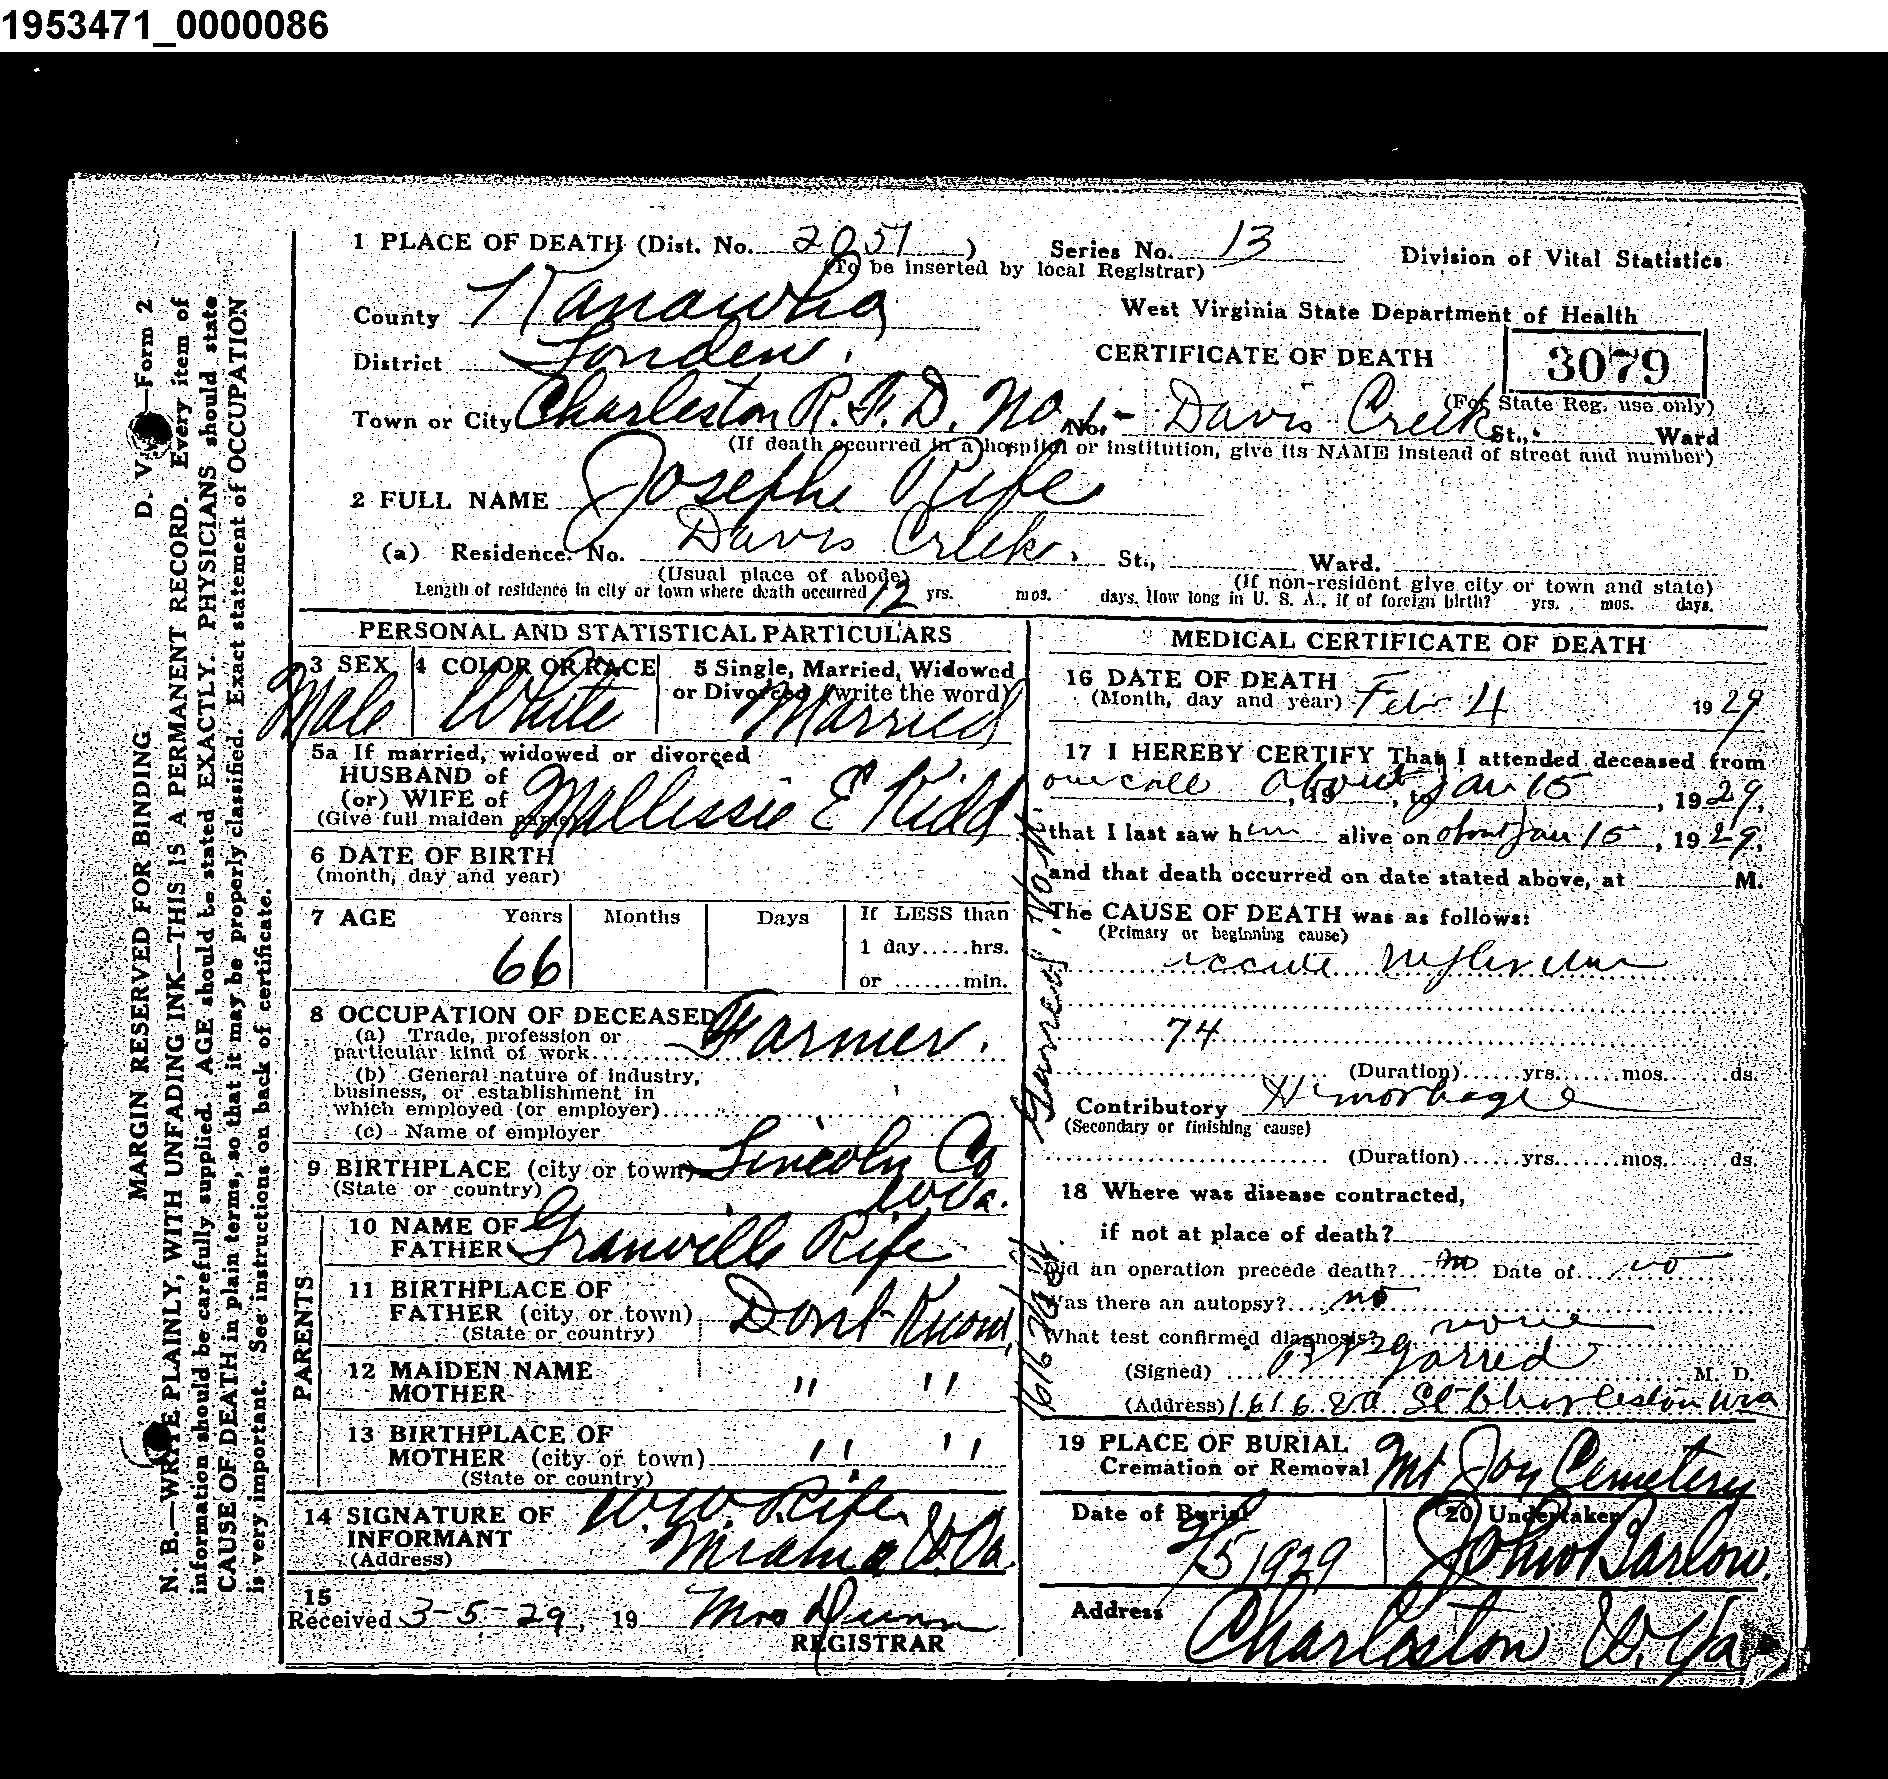 1953471_0000086
1 PLACE OF DEATH (Dist. No. 2051 ) Series No. 13 Division of Vital Statistics
(To be inserted by local Registrar)
County Kanawha West Virginia State Department of Health
District Louden. CERTIFICATE OF DEATH 3079
(For State Reg. use only)
Town or City Charleston R.F.D. No 1 No. - Davis Creek St., Ward
(If death occurred in a hospital or institution, give its NAME instead of street and number)
2 FULL NAME Joseph Rife
(a) Residence. No. Davis Creek. St., Ward.
(Usual place of abode) (If non-resident give city or town and state)
Length of residence in city or town where death occurred 12 yrs. mos. days. How long in U. S. A., if of foreign birth? yrs. mos. days.
PERSONAL AND STATISTICAL PARTICULARS
3 SEX 4 COLOR OR RACE 5 Single, Married, Widowed
or Divorced (write the word)
Male White Married
5a If married, widowed or divorced
HUSBAND of
(or) WIFE of Mellissie E Kidd
(Give full maiden name)
6 DATE OF BIRTH
(month, day and year)
7 AGE Years Months Days If LESS than
1 day.....hrs.
66 or .......min.
8 OCCUPATION OF DECEASED
(a) Trade, profession or
particular kind of work Farmer.
(b) General nature of industry,
business, or establishment in
which employed (or employer)
(c) Name of employer
9 BIRTHPLACE (city or town) Lincoln Co
(State or country) W Va.
PARENTS
10 NAME OF
FATHER Granville Rife
11 BIRTHPLACE OF
FATHER (city or town) Dont Know
(State or country)
12 MAIDEN NAME
MOTHER " "
13 BIRTHPLACE OF
MOTHER (city or town) " "
(State or country)
14 SIGNATURE OF W.W. Rife
INFORMANT
(Address) Miama W.Va.
15
Received 3-5-29, 19 Mrs Dunn
REGISTRAR
MEDICAL CERTIFICATE OF DEATH
16 DATE OF DEATH
(Month, day and year) Feb 4 1929
17 I HEREBY CERTIFY That I attended deceased from
one call about, 19 , to Jan 15, 1929,
that I last saw him alive on about Jan 15, 1929,
and that death occurred on date stated above, at M.
The CAUSE OF DEATH was as follows:
(Primary or beginning cause)
accute
74
(Duration)......yrs.......mos.......ds.
Contributory Himorhage
(Secondary or finishing cause)
(Duration)......yrs.......mos.......ds.
18 Where was disease contracted,
if not at place of death?
Did an operation precede death? no Date of no
Was there an autopsy? no
What test confirmed diagnosis? none
(Signed) Jarred M. D.
(Address) 1616 St Charleston Wva
19 PLACE OF BURIAL
Cremation or Removal Mt Joy Cemetery
Date of Burial 20 Undertaker
2/5 1929 John Barlow.
Address Charleston W.Va.
D. V. S.—Form 2
MARGIN RESERVED FOR BINDING
N. B.—WRITE PLAINLY, WITH UNFADING INK—THIS IS A PERMANENT RECORD. Every item of
information should be carefully supplied. AGE should be stated EXACTLY. PHYSICIANS should state
CAUSE OF DEATH in plain terms, so that it may be properly classified. Exact statement of OCCUPATION
is very important. See instructions on back of certificate.